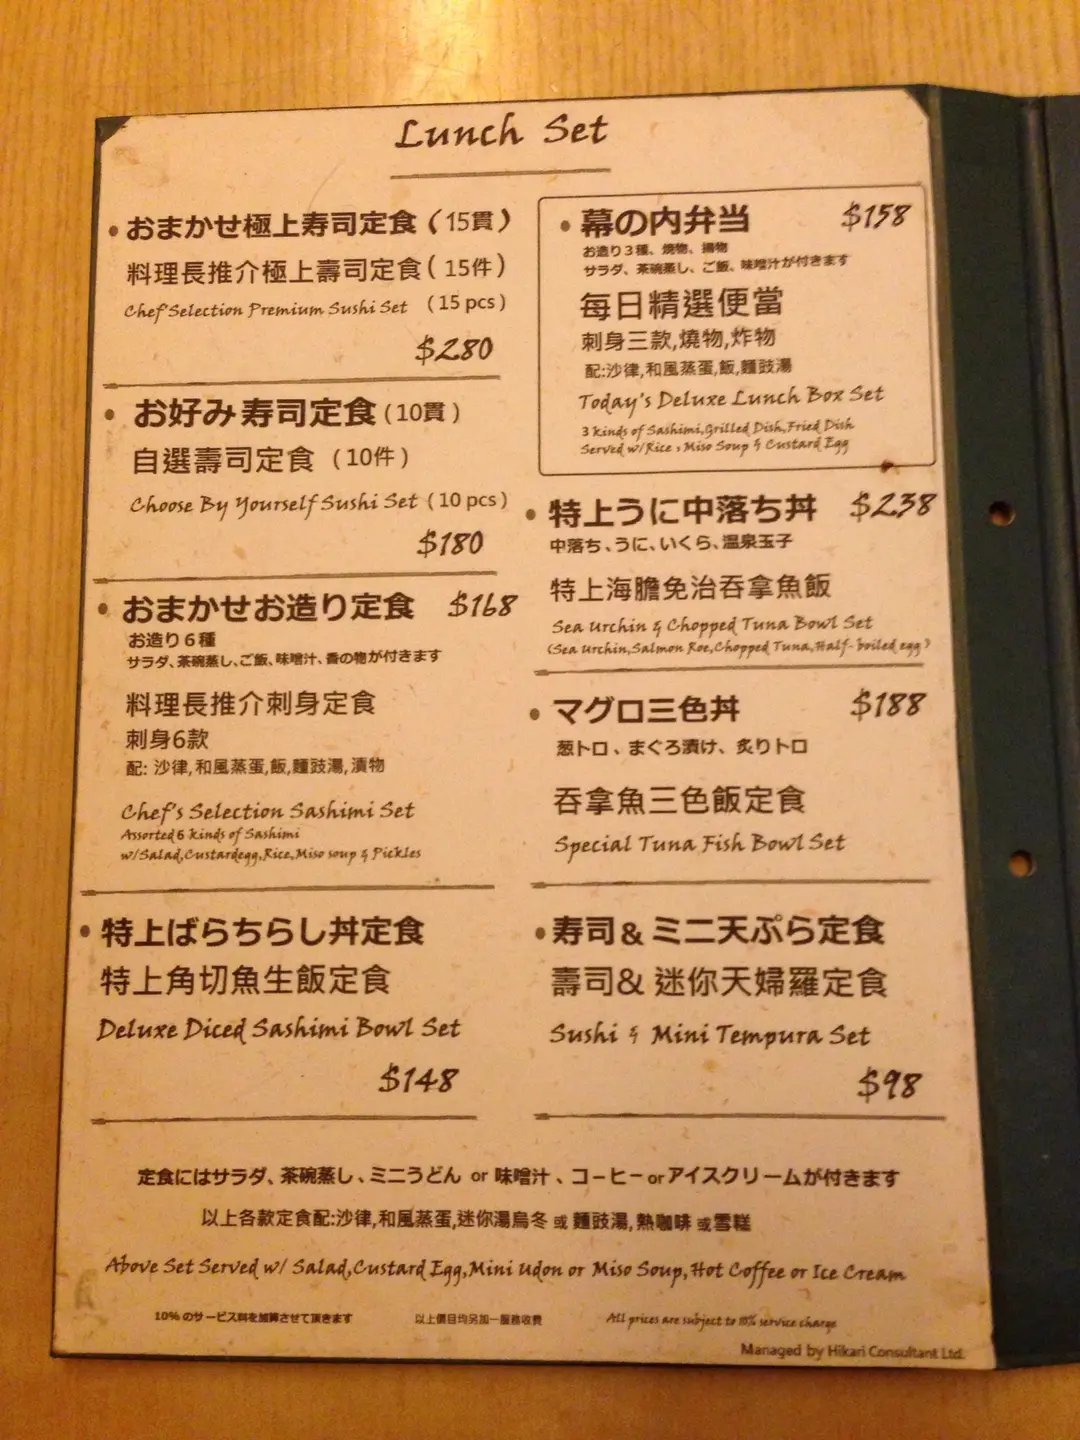 Lunch Set
・おまかせ極上寿司定食（15貫）
料理長推介極上壽司定食（15件）
Chef'Selection Premium Sushi Set （15 pcs）
$280
・お好み寿司定食（10貫）
自選壽司定食（10件）
Choose By Yourself Sushi Set（10 pcs）
$180
・おまかせお造り定食 $168
お造り６種
サラダ、茶碗蒸し、ご飯、味噌汁、香の物が付きます
料理長推介刺身定食
刺身6款
配: 沙律,和風蒸蛋,飯,麵豉湯,漬物
Chef's Selection Sashimi Set
Assorted 6 kinds of Sashimi
w/Salad,Custardegg,Rice,Miso soup & Pickles
・特上ばらちらし丼定食
特上角切魚生飯定食
Deluxe Diced Sashimi Bowl Set
$148
・幕の内弁当 $158
お造り３種、焼物、揚物
サラダ、茶碗蒸し、ご飯、味噌汁が付きます
每日精選便當
刺身三款,燒物,炸物
配:沙律,和風蒸蛋,飯,麵豉湯
Today's Deluxe Lunch Box Set
3 kinds of Sashimi,Grilled Dish,Fried Dish
Served w/Rice , Miso Soup & Custard Egg
・特上うに中落ち丼 $238
中落ち、うに、いくら、温泉玉子
特上海膽免治吞拿魚飯
Sea Urchin & Chopped Tuna Bowl Set
(Sea Urchin,Salmon Roe,Chopped Tuna,Half-boiled egg)
・マグロ三色丼 $188
葱トロ、まぐろ漬け、炙りトロ
吞拿魚三色飯定食
Special Tuna Fish Bowl Set
・寿司＆ミニ天ぷら定食
壽司& 迷你天婦羅定食
Sushi & Mini Tempura Set
$98
定食にはサラダ、茶碗蒸し、ミニうどん or 味噌汁、コーヒー or アイスクリームが付きます
以上各款定食配:沙律,和風蒸蛋,迷你湯烏冬 或 麵豉湯,熱咖啡 或雪糕
Above Set Served w/ Salad,Custard Egg,Mini Udon or Miso Soup,Hot Coffee or Ice Cream
10% のサービス料を加算させて頂きます 以上價目均另加一服務收費 All prices are subject to 10% service charge
Managed by Hikari Consultant Ltd.